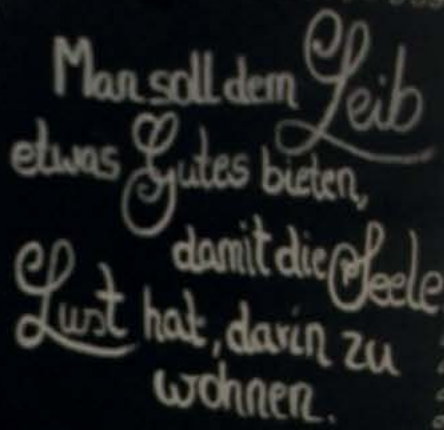 Man soll dem Leib
etwas Gutes bieten,
damit die Seele
Lust hat, darin zu
wohnen.